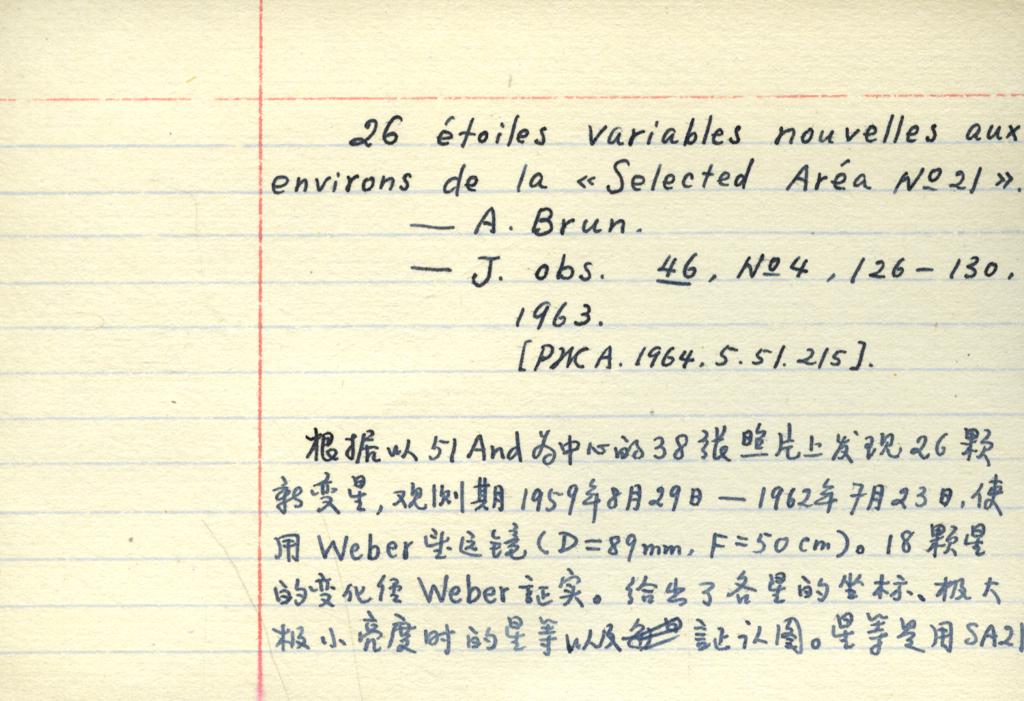 26 étoiles variables nouvelles aux
environs de la « Selected Aréa №21 ».
— A. Brun.
— J. obs. 46, №4, 126–130,
1963.
[РЖ А. 1964. 5. 51. 215].
根据以51 And为中心的38张照片上发现26颗
新变星,观测期1959年8月29日—1962年7月23日,使
用Weber 远镜(D=89mm, F=50cm)。18颗星
的变化经Weber証实。给出了各星的坐标、极大
极小亮度时的星等以及 証认图。星等是用SA21